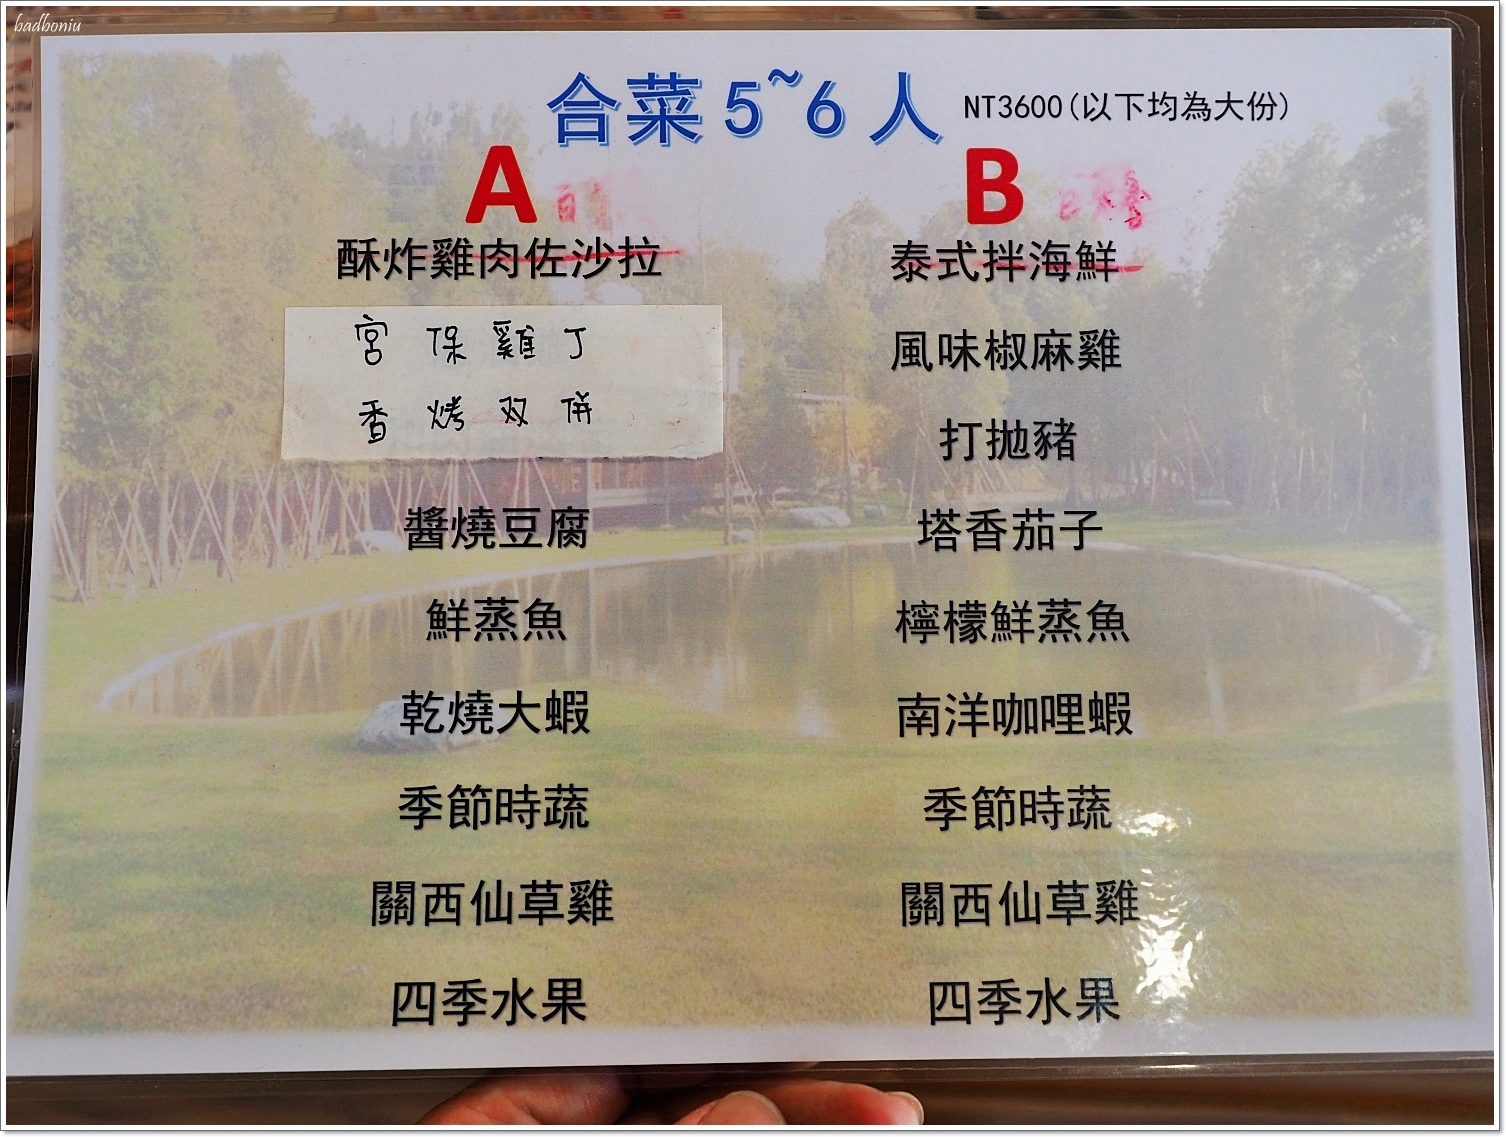 badboniu
合菜5~6人 NT3600(以下均為大份)
A B
酥炸雞肉佐沙拉
宮保雞丁
香烤双併
醬燒豆腐
鮮蒸魚
乾燒大蝦
季節時蔬
關西仙草雞
四季水果
泰式拌海鮮
風味椒麻雞
打拋豬
塔香茄子
檸檬鮮蒸魚
南洋咖哩蝦
季節時蔬
關西仙草雞
四季水果